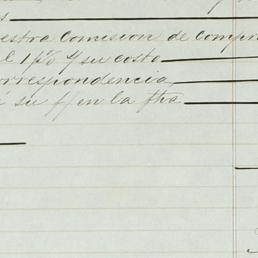 s
estra Comision de compr
l 1 p% y su costo
orrespondencia
su f/ en la fha